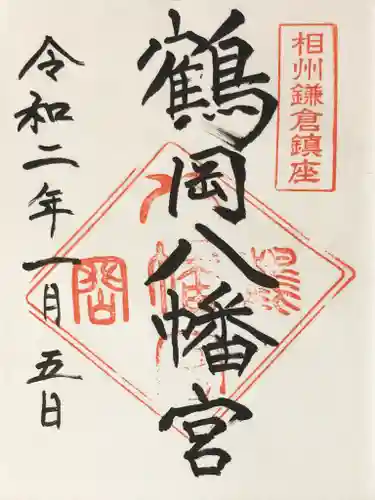 相州鎌倉鎮座
鶴岡八幡宮
令和二年一月五日